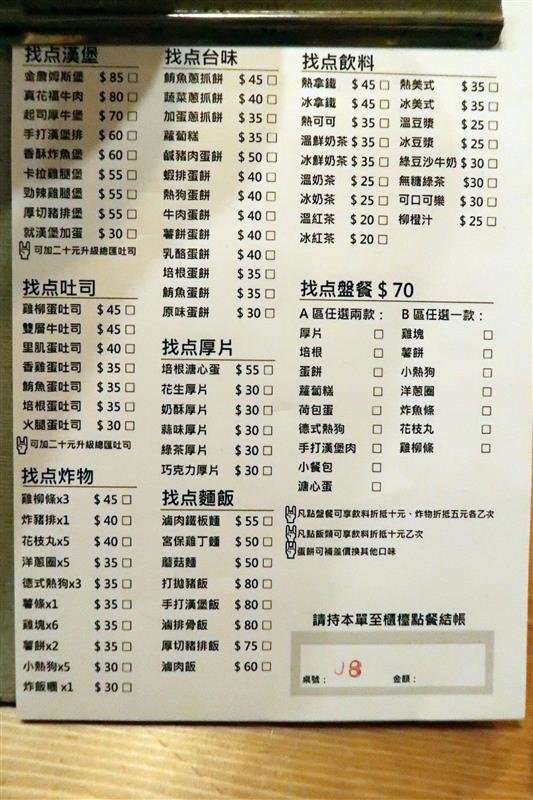 找点漢堡
金詹姆斯堡 $85 □
真花福牛肉 $80 □
起司厚牛堡 $70 □
手打漢堡排 $60 □
香酥炸魚堡 $60 □
卡拉雞腿堡 $55 □
勁辣雞腿堡 $55 □
厚切豬排堡 $55 □
就漢堡加蛋 $30 □
可加二十元升級總匯吐司
找点吐司
雞柳蛋吐司 $45 □
雙層牛吐司 $45 □
里肌蛋吐司 $40 □
香雞蛋吐司 $35 □
鮪魚蛋吐司 $35 □
培根蛋吐司 $35 □
火腿蛋吐司 $30 □
可加二十元升級總匯吐司
找点炸物
雞柳條x3 $45 □
炸豬排x1 $40 □
花枝丸x5 $40 □
洋蔥圈x5 $35 □
德式熱狗x3 $35 □
薯條x1 $35 □
雞塊x6 $35 □
薯餅x2 $35 □
小熱狗x5 $30 □
炸飯糰 x1 $30 □
找点台味
鮪魚蔥抓餅 $45 □
蔬菜蔥抓餅 $40 □
加蛋蔥抓餅 $35 □
蘿蔔糕 $35 □
鹹豬肉蛋餅 $50 □
蝦排蛋餅 $40 □
熱狗蛋餅 $40 □
牛肉蛋餅 $40 □
薯餅蛋餅 $40 □
乳酪蛋餅 $40 □
培根蛋餅 $35 □
鮪魚蛋餅 $35 □
原味蛋餅 $30 □
找点厚片
培根溏心蛋 $55 □
花生厚片 $30 □
奶酥厚片 $30 □
蒜味厚片 $30 □
綠茶厚片 $30 □
巧克力厚片 $30 □
找点麵飯
滷肉鐵板麵 $55 □
宮保雞丁麵 $50 □
蘑菇麵 $50 □
打拋豬飯 $80 □
手打漢堡飯 $80 □
滷排骨飯 $80 □
厚切豬排飯 $75 □
滷肉飯 $60 □
找点飲料
熱拿鐵 $45 □ 熱美式 $35 □
冰拿鐵 $45 □ 冰美式 $35 □
熱可可 $35 □ 溫豆漿 $25 □
溫鮮奶茶 $35 □ 冰豆漿 $25 □
冰鮮奶茶 $35 □ 綠豆沙牛奶 $30 □
溫奶茶 $25 □ 無糖綠茶 $30 □
冰奶茶 $25 □ 可口可樂 $30 □
溫紅茶 $20 □ 柳橙汁 $25 □
冰紅茶 $20 □
找点盤餐 $70
A 區任選兩款： B 區任選一款：
厚片 □ 雞塊 □
培根 □ 薯餅 □
蛋餅 □ 小熱狗 □
蘿蔔糕 □ 洋蔥圈 □
荷包蛋 □ 炸魚條 □
德式熱狗 □ 花枝丸 □
手打漢堡肉 □ 雞柳條 □
小餐包 □
溏心蛋 □
凡點盤餐可享飲料折抵十元、炸物折抵五元各乙次
凡點飯類可享飲料折抵十元乙次
蛋餅可補差價換其他口味
請持本單至櫃檯點餐結帳
桌號： J8 金額：